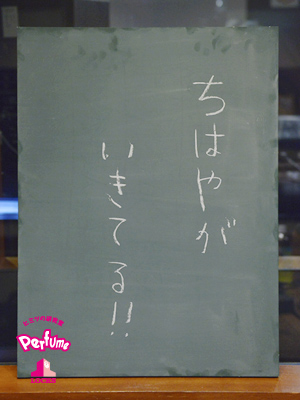 ちはやが
いきてる!!
Perfume